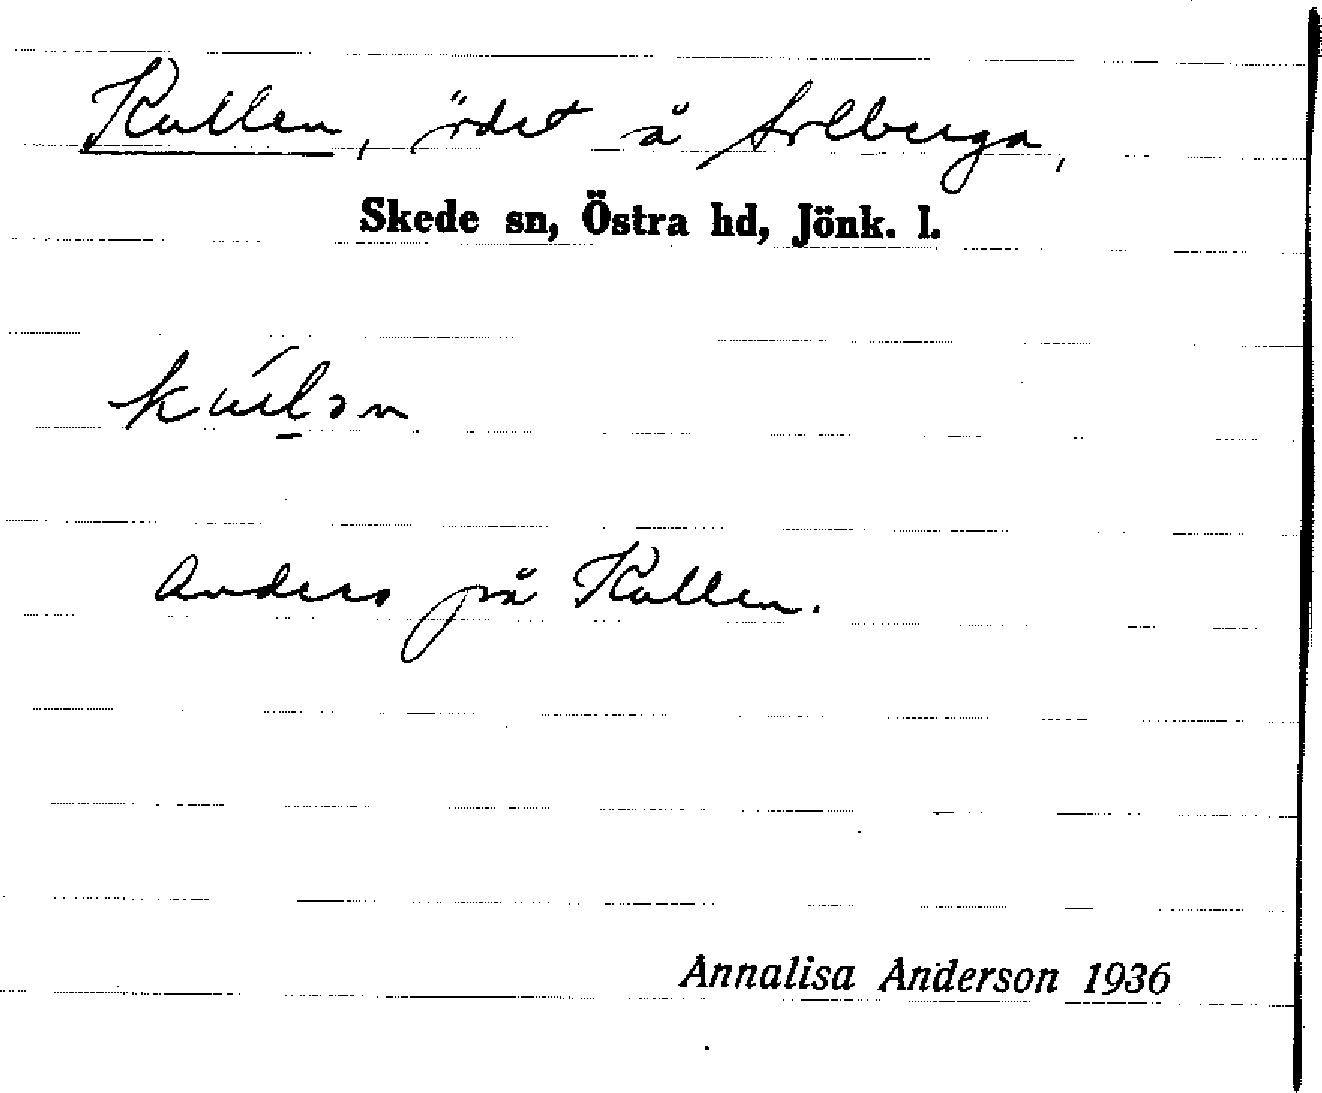 Kullen, ödet å Solberga,
Skede sn, Östra hd, Jönk. l.
Anders på Kullen.
Annalisa Anderson 1936